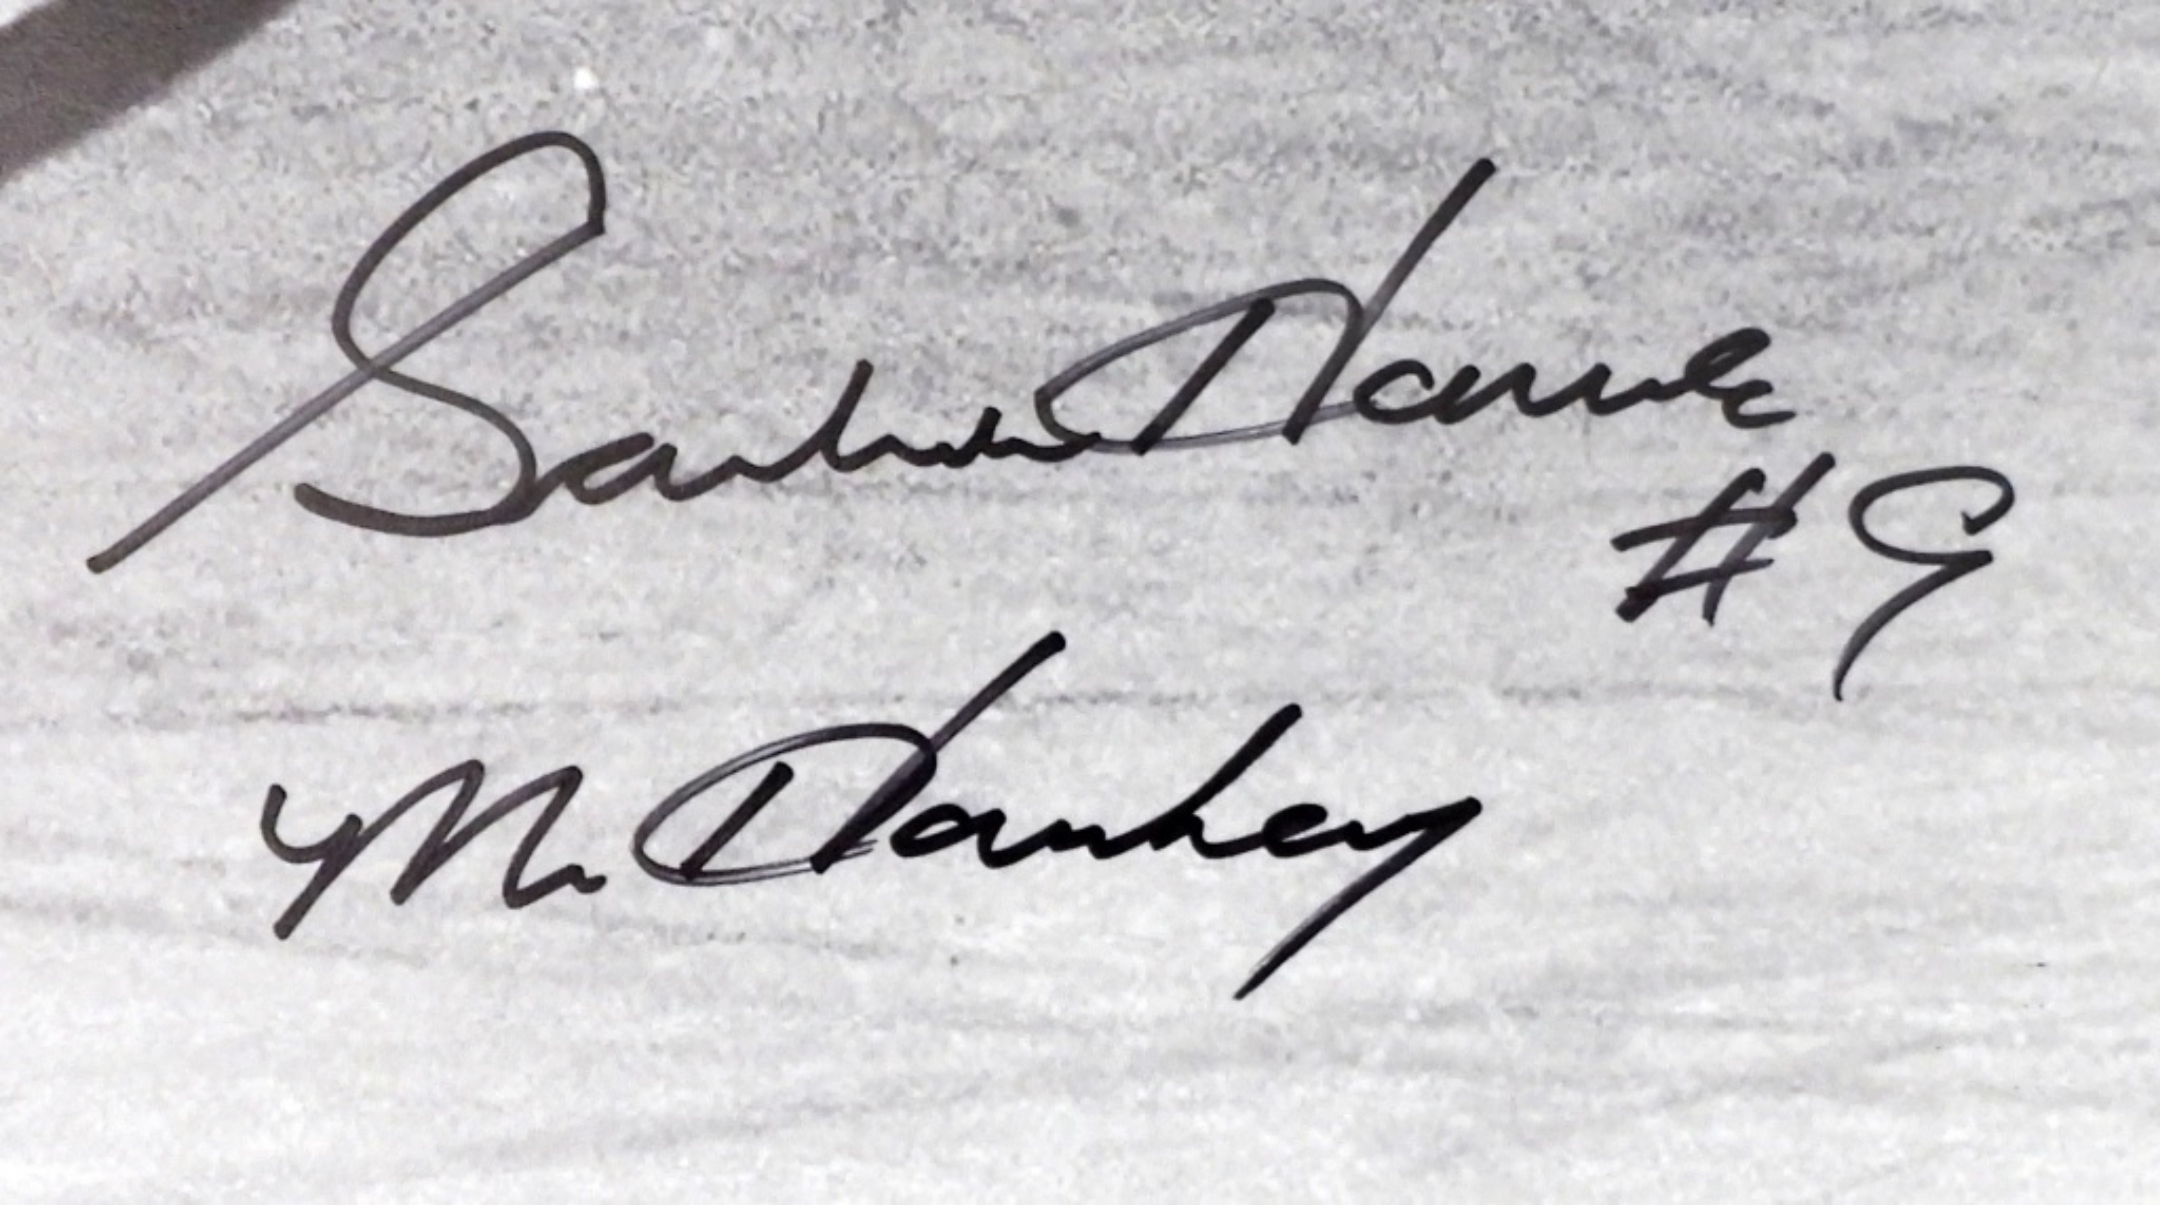 Gordie Howe
#9
Mr. Hockey